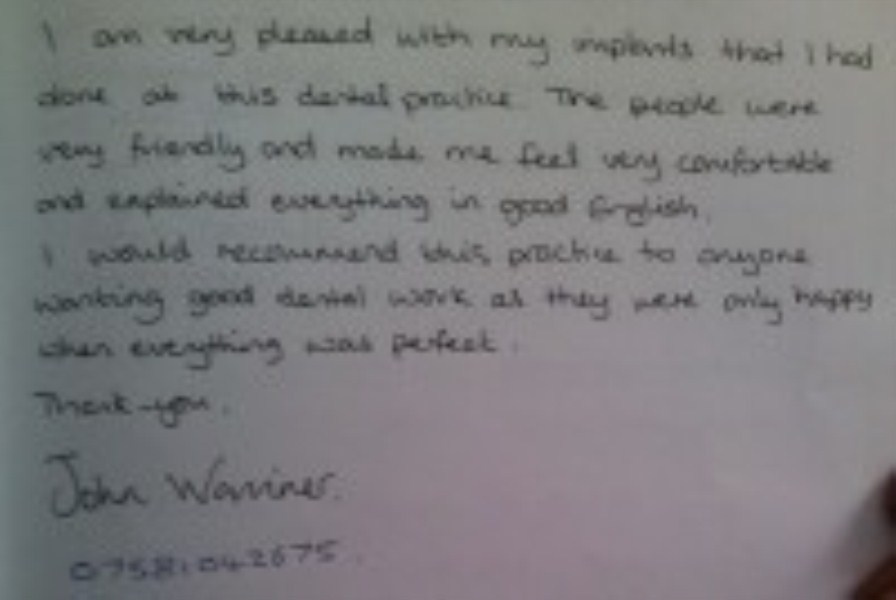 I am very pleased with my implants that I had
done at this dental practice. The people were
very friendly and made me feel very comfortable
and explained everything in good English.
I would recommend this practice to anyone
wanting good dental work as they were only happy
when everything was perfect.
Thank-you.
John Warriner.